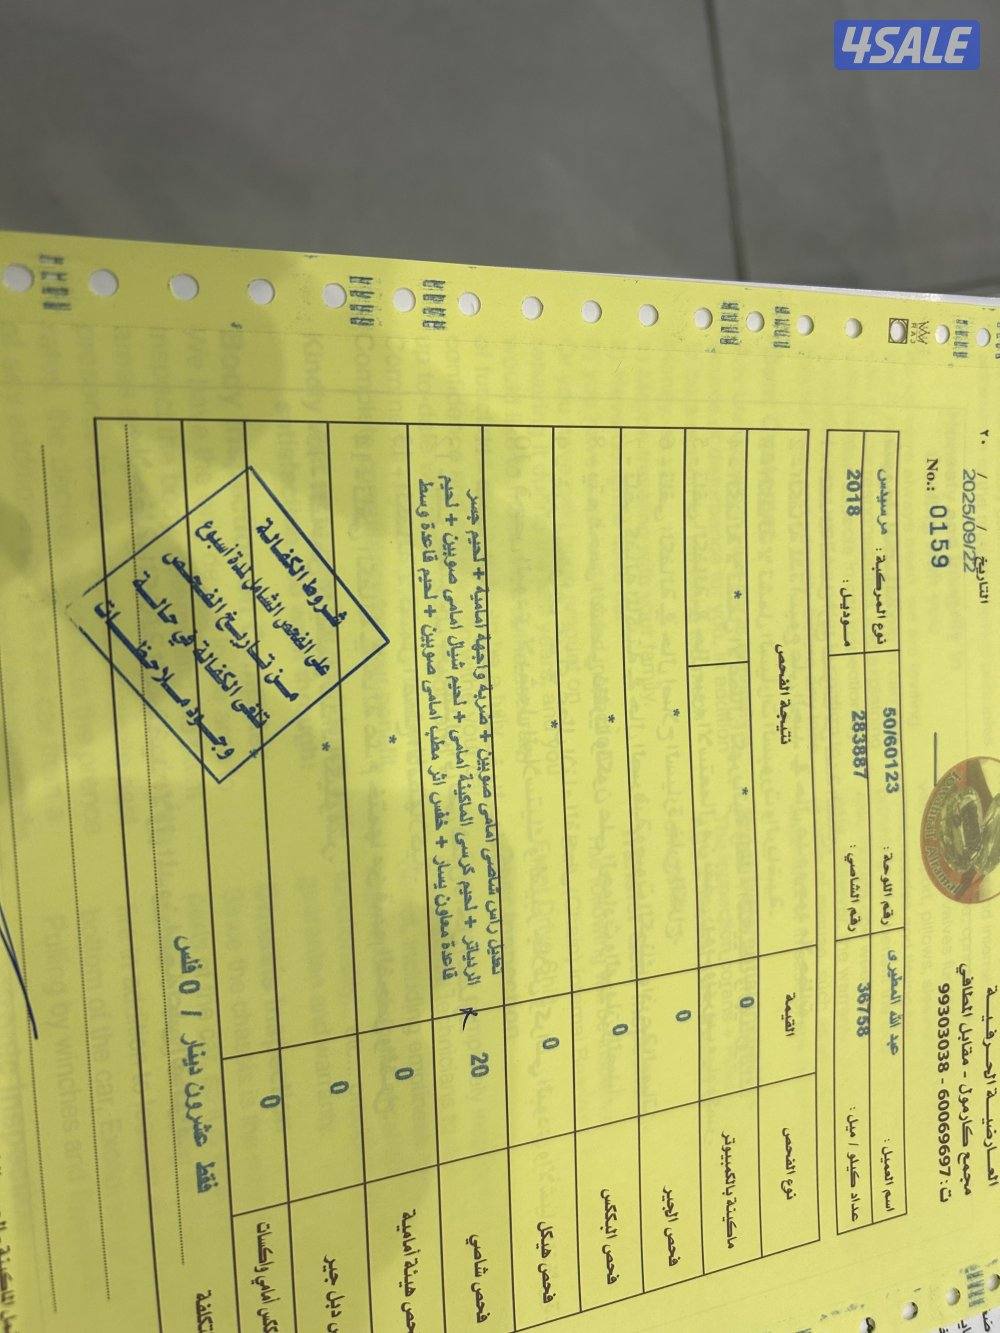 4SALE
العارضيـة الحرفيـة
مجمع كارمول - مقابل المطافي
ت: 60069697 - 99303038
٢٠ / / التاريخ
2025/09/22
No.: 0159
اسم العميل : عبد الله المطيري
رقم اللوحة : 50/60123
نوع المركبة : مرسيدس
عداد كيلو / ميل : 36758
رقم الشاصي : 283887
موديل : 2018
نوع الفحص القيمة نتيجة الفحص
ماكينة بالكمبيوتر 0 * *
فحص الجير 0 *
فحص البكس 0 *
فحص هيكل 0 *
فحص شاصي 20 تعديل راس شاصي امامي صوبين + ضربة واجهة امامية + لحيم جسر
الردياتر + لحيم كرسي الماكينة امامي + لحيم شيال امامي صوبين + لحيم
قاعدة معاون يسار + خفس اثر مطب امامي صوبين + لحيم قاعدة وسط
هيئة أمامية 0 *
دبل جير 0 *
أمامي واكسات 0 *
فقط عشرون دينار / 0 فلس
شروط الكفالة
على الفحص الشامل لمدة أسبوع
من تاريخ الفحص
تلغى الكفالة في حالة
وجود ملاحظات